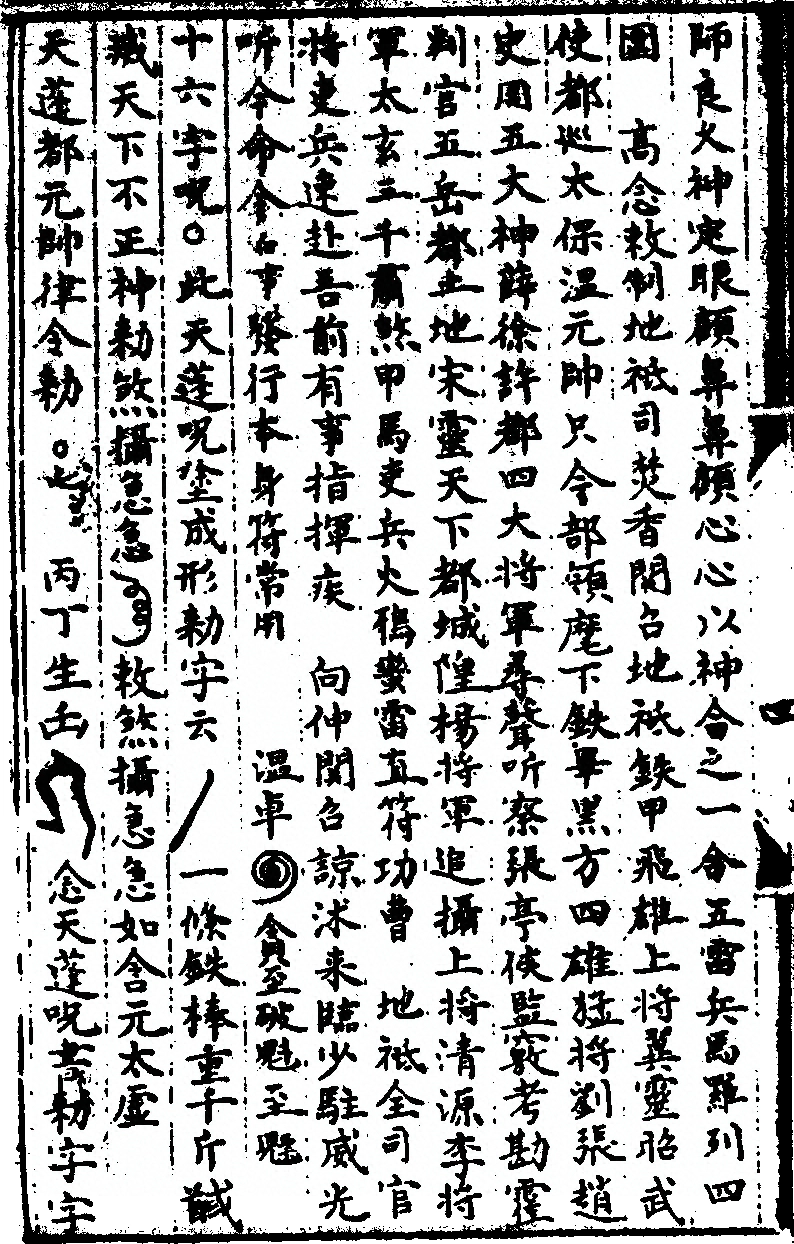 師良久神定眼顖鼻鼻顖心心以神合之一合五雷兵馬羅列四
圍 高念敕制地祇司焚香関召地祇鉄甲飛雄上將翼靈昭武
使都巡太保溫元帥只今部領麾下鉄畢黑方四雄猛將劉張趙
史周五大神薛徐許都四大將軍尋聲听察張亭侯監竅考勘靈
判官五岳都土地宋靈天下都城隍楊將軍追攝上將清源李將
軍太玄三千蕭煞甲馬吏兵火鴉蠻雷直符功曹 地祇全司官
將吏兵速赴吾前有事指揮疾 向仲関召諒沭来臨少駐威光
听令命今召事發行本身符常用 溫卓 貪至破魁至魁
十六字呪○此天蓬呪塗成形勑字云 一條鉄棒重千斤
天下不正神勑煞攝急急 敕煞攝急急如含元太虛
天蓬都元帥律令勑○七 丙丁生 念天蓬呪書勑字字